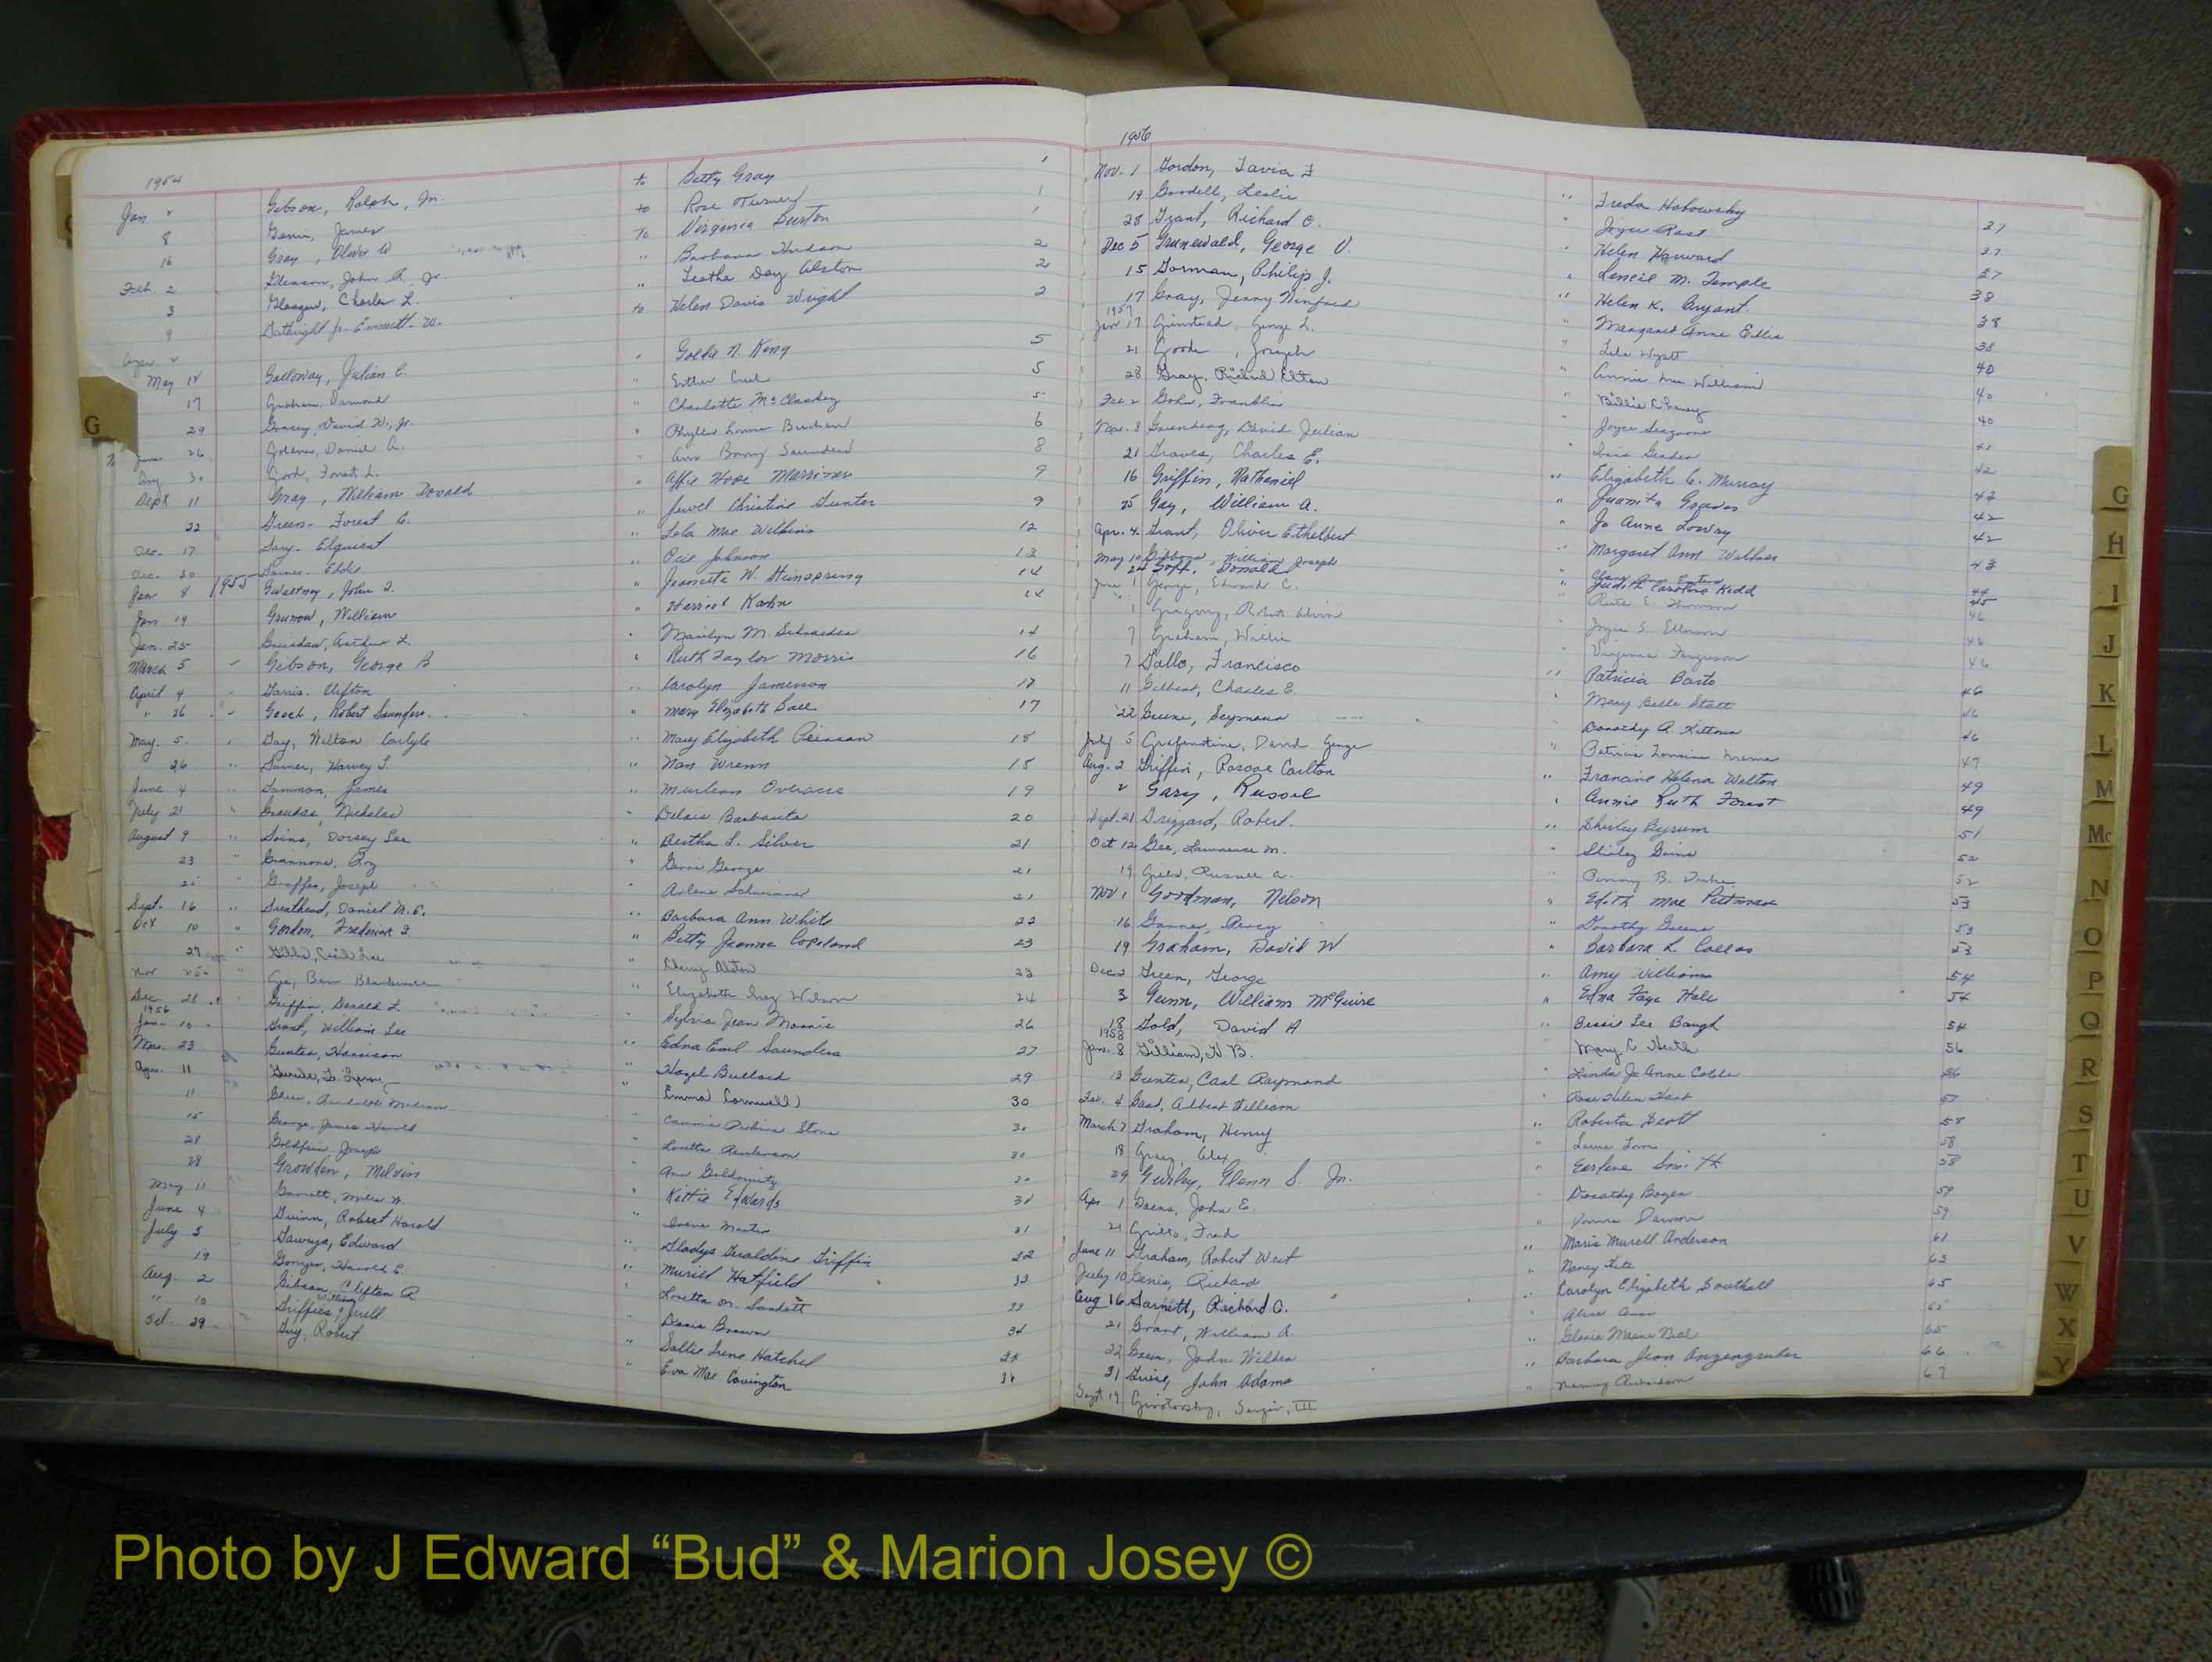 1954
Jan 2 Gibson, Ralph, Jr. to Betty Gray 1
8 James to Rose Turner 1
16 Gray, Oliver W To Virginia Burton 1
Feb. 2 Gleason, John A. Jr. " Barbara Hudson 2
3 Glasgow, Charles L. " Leatha Day Alston 2
9 Gathright Jr. Emmett W. to Helen Davis Wright 2
Apr 2
May 14 Galloway, Julian C. " Goldie N. King 5
17 Graham " Esther 5
29 Gracey, David W., Jr. " Charlotte McClaskey 5
June 26 Daniel A. " Phyllis Louise 6
Aug 30 Good, Forest L. " Ann Saunders 8
Sept 11 Gray, William Donald " Affie Hope Marriner 9
22 Green, Forest C. " Jewel Christine Gunter 9
Dec. 17 Gary, " Lola Mae Wilkins 12
Dec. 30 Garner, Eddie " Ocie Johnson 13
Jan 8 1955 Gwaltney, John J. " Jeanette W. 14
Jan 19 William " Harriet Kahn 14
Jan. 25 Arthur L. " Marilyn M. Schraeder 14
March 5 Gibson, George B " Ruth Taylor Morris 16
April 4 Garris, Clifton " Carolyn Jamerson 17
" 26 Gooch, Robert Saunders " Mary Elizabeth Ball 17
May. 5 Gay, Wilton Carlyle " Mary Elizabeth Pearson 18
26 " Garner, Harvey T. " Nan Wrenn 18
June 4 " Gammon, James " Overacre 19
July 21 " Nicholas " 20
August 9 " Goins, Dorsey Lee " Bertha L. Silver 21
23 " Giannone, Roy " George 21
25 " Joseph " Arlene 21
Sept. 16 " Greathead, Daniel M. C. " Barbara Ann White 22
Oct 10 " Gordon, Frederick J. " Betty Jeanne Copeland 23
27 " Gibbs, Cecil Lee " Alston 23
Nov 25 " Gee, Ben " Elizabeth Inez Wilson 24
Dec. 28 " Griffin, Donald L. " Sylvia Jean Morris 26
1956
Jan. 10 Grant, William Lee " Edna Earl Saunders 27
Mar. 23 Gunter, Harrison " Hazel Bullock 29
Apr. 11 " Emma Cornwell 30
11 " Stone 30
15 George, James Harold " Loretta 30
28 Goldfein, Joseph " Ann 30
28 Growden, Melvin " Kittie Edwards 31
May 11 Garrett " Irene 31
June 4 Guinn, Robert Harold " Gladys Geraldine Griffin 32
July 3 Edward " Muriel Hatfield 33
19 Harold E. " Loretta M. 33
Aug. 2 Gibson, Clifton R. " Brown 34
" 10 Griffies, William " Sallie Irene Hatchel 35
Oct. 29 Guy, Robert " Eva Mae Covington 36
1956
Nov. 1 Gordon, Tavia F " Freda Habowsky 37
19 Goodell, Leslie " Joyce Rast 37
28 Grant, Richard O. " Helen Howard 37
Dec 5 Grunewald, George V. " M. Temple 38
15 Gorman, Philip J. " Helen K. Bryant 38
17 Gray, Jenny Winfred " Margaret Anne Ellis 38
1957
Jan 17 Grinstead, George L. " Lila Wyatt 40
21 Goode, Joseph " Annie Mae Williams 40
28 Gray, Richard Elton " Billie Cheney 40
Feb 2 Gohn, Franklin " Joyce 41
Mar. 8 Greenberg, David Julian " 42
21 Graves, Charles E. " Elizabeth C. Murray 42
16 Griffin, Nathaniel " Juanita Graves 42
25 Gay, William A. " Jo Anne Lowry 42
Apr. 4 Grant, Oliver Ethelbert " Margaret Ann Wallace 43
May 10 Gibbons, William Joseph " 44
24 Goff, Donald " Judith Caroline Kidd 45
June 1 George, Edward C. " Ruth E. 46
1 Gregory, Robert Alvin " Joyce S. Ellerson 46
7 Graham, Willie " Virginia Ferguson 46
7 Gallo, Francisco " Patricia Basto 46
11 Gilbert, Charles E. " Mary Belle 46
22 Greene, Seymour " Dorothy A. 46
July 5 David George " Patricia 47
Aug. 2 Griffin, Roscoe Carlton " Francine Helena Walton 49
2 Gary, Russel " Annie Ruth Forest 49
Sept. 21 Grizzard, Robert " Shirley Byrum 51
Oct 12 Gee, Lawrence M. " Shirley 52
19 Russell A. " B. Duke 52
Nov 1 Goodman, Nelson " Edith Mae Pittman 53
16 Garner, Percy " Dorothy Greene 53
19 Graham, David W " Barbara L. Callas 53
Dec 2 Green, George " Amy Williams 54
3 Gunn, William McGuire " Edna Faye Hale 54
18 Gold, David A " Bessie Lee Baugh 54
1958
Jan. 8 Gilliam, H B. " Mary C. Heath 56
13 Gunter, Carl Raymond " Linda Jo Anne Cobble 56
Feb. 4 Gast, Albert William " Rose Helen 57
March 7 Graham, Henry " Roberta Scott 58
18 Gray, Alex " 58
29 Gurley, Glenn S. Jr. " Earlene Smith 58
Apr 1 Goens, John E. " Dorothy Bogen 59
21 Grillo, Fred " Donna Dawson 59
June 11 Graham, Robert West " Maris Murell Anderson 61
July 10 Genis, Richard " Nancy 63
Aug 16 Garnett, Richard O. " Carolyn Elizabeth Southall 65
21 Grant, William A. " Alice 65
22 Green, John Wilder " Gloria Maxine Neal 65
31 Guise, John Adams " Barbara Jean Anzengruber 66
Sept 19 III " Nancy 67
G
G
H
I
J
K
L
M
Mc
N
O
P
Q
R
S
T
U
V
W
X
Y
Photo by J Edward “Bud” & Marion Josey ©